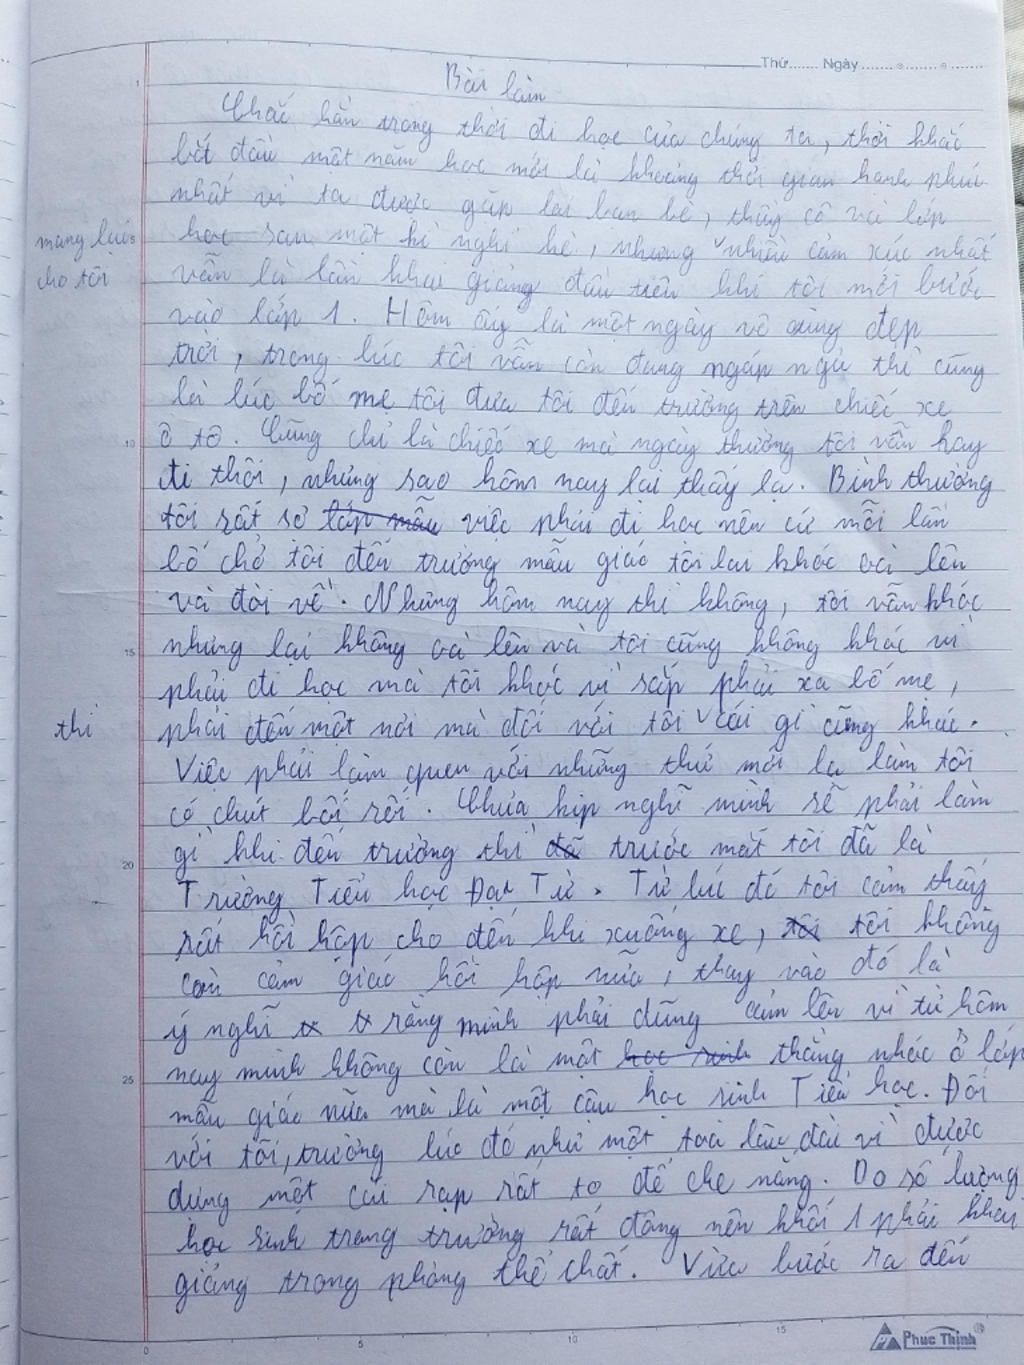 Thứ....... Ngày........o........o.......
Bài làm
Chắc hẳn trong thời đi học của chúng ta, thời khắc
bắt đầu một năm học mới là khoảng thời gian hạnh phúc
nhất vì ta được gặp lại bạn bè, thầy cô và lớp
học sau một kì nghỉ hè, nhưng ˅ nhiều cảm xúc nhất
mang lại
cho tôi
vẫn là lần khai giảng đầu tiên khi tôi mới bước
vào lớp 1. Hôm ấy là một ngày vô cùng đẹp
trời, trong lúc tôi vẫn còn đang ngáp ngủ thì cũng
là lúc bố mẹ tôi đưa tôi đến trường trên chiếc xe
ô tô. Cũng chỉ là chiếc xe mà ngày thường tôi vẫn hay
đi thôi, nhưng sao hôm nay lại thấy lạ. Bình thường
tôi rất sợ lớp mẫu việc phải đi học nên cứ mỗi lần
bố chở tôi đến trường mẫu giáo tôi lại khóc oà lên
và đòi về. Nhưng hôm nay thì không, tôi vẫn khóc
nhưng lại không oà lên và tôi cũng không khóc vì
phải đi học mà tôi khóc vì sắp phải xa bố mẹ,
thì
phải đến một nơi mà đối với tôi ˅ cái gì cũng khác.
Việc phải làm quen với những thứ mới lạ làm tôi
có chút bối rối. Chưa kịp nghĩ mình sẽ phải làm
gì khi đến trường thì đã trước mắt tôi đã là
Trường Tiểu học Đại Từ. Từ lúc đó tôi cảm thấy
rất hồi hộp cho đến khi xuống xe, tôi tôi không
còn cảm giác hồi hộp nữa, thay vào đó là
ý nghĩ rằng mình phải dũng cảm lên vì từ hôm
nay mình không còn là một học sinh thằng nhóc ở lớp
mẫu giáo nữa mà là một cậu học sinh Tiểu học. Đối
với tôi, trường lúc đó như một toà lâu đài vì được
dựng một cái rạp rất to để che nắng. Do số lượng
học sinh trong trường rất đông nên khối 1 phải khai
giảng trong phòng thể chất. Vừa bước ra đến
Phuc Thinh